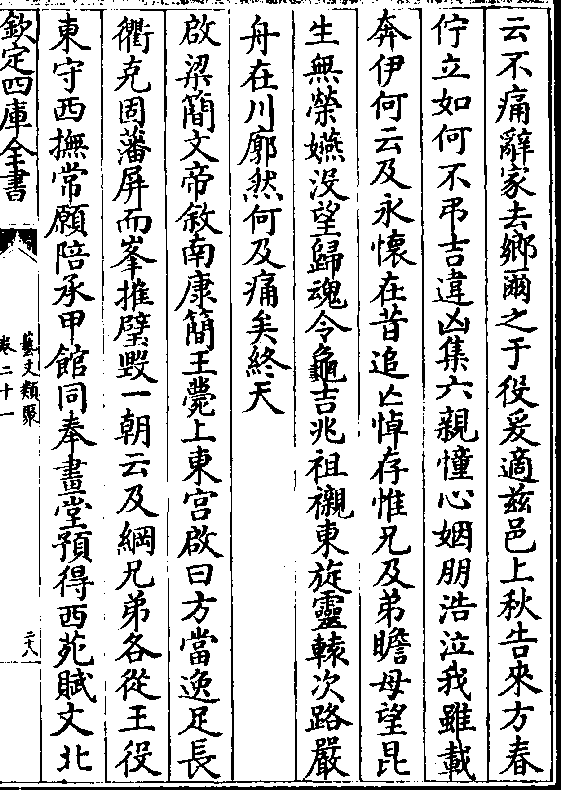 云不痛辭家去鄉爾之于役爰適兹邑上秋告來方春
佇立如何不弔吉違凶集六親憧心姻朋浩泣我雖載
奔伊何云及永懷在昔追亡悼存惟兄及弟瞻母望昆
生無榮嬿没望歸魂令龜吉兆祖櫬東旋靈轅次路嚴
舟在川廓然何及痛矣終天
啟梁簡文帝敘南康簡王薨上東宫啟曰方當逸足長
衢克固藩屏而峯摧壁毁一朝云及綱兄弟各從王役
東守西撫常願陪承甲館同奉畫堂預得西苑賦文北
欽定四庫全書
藝文類聚
卷二十一
二八